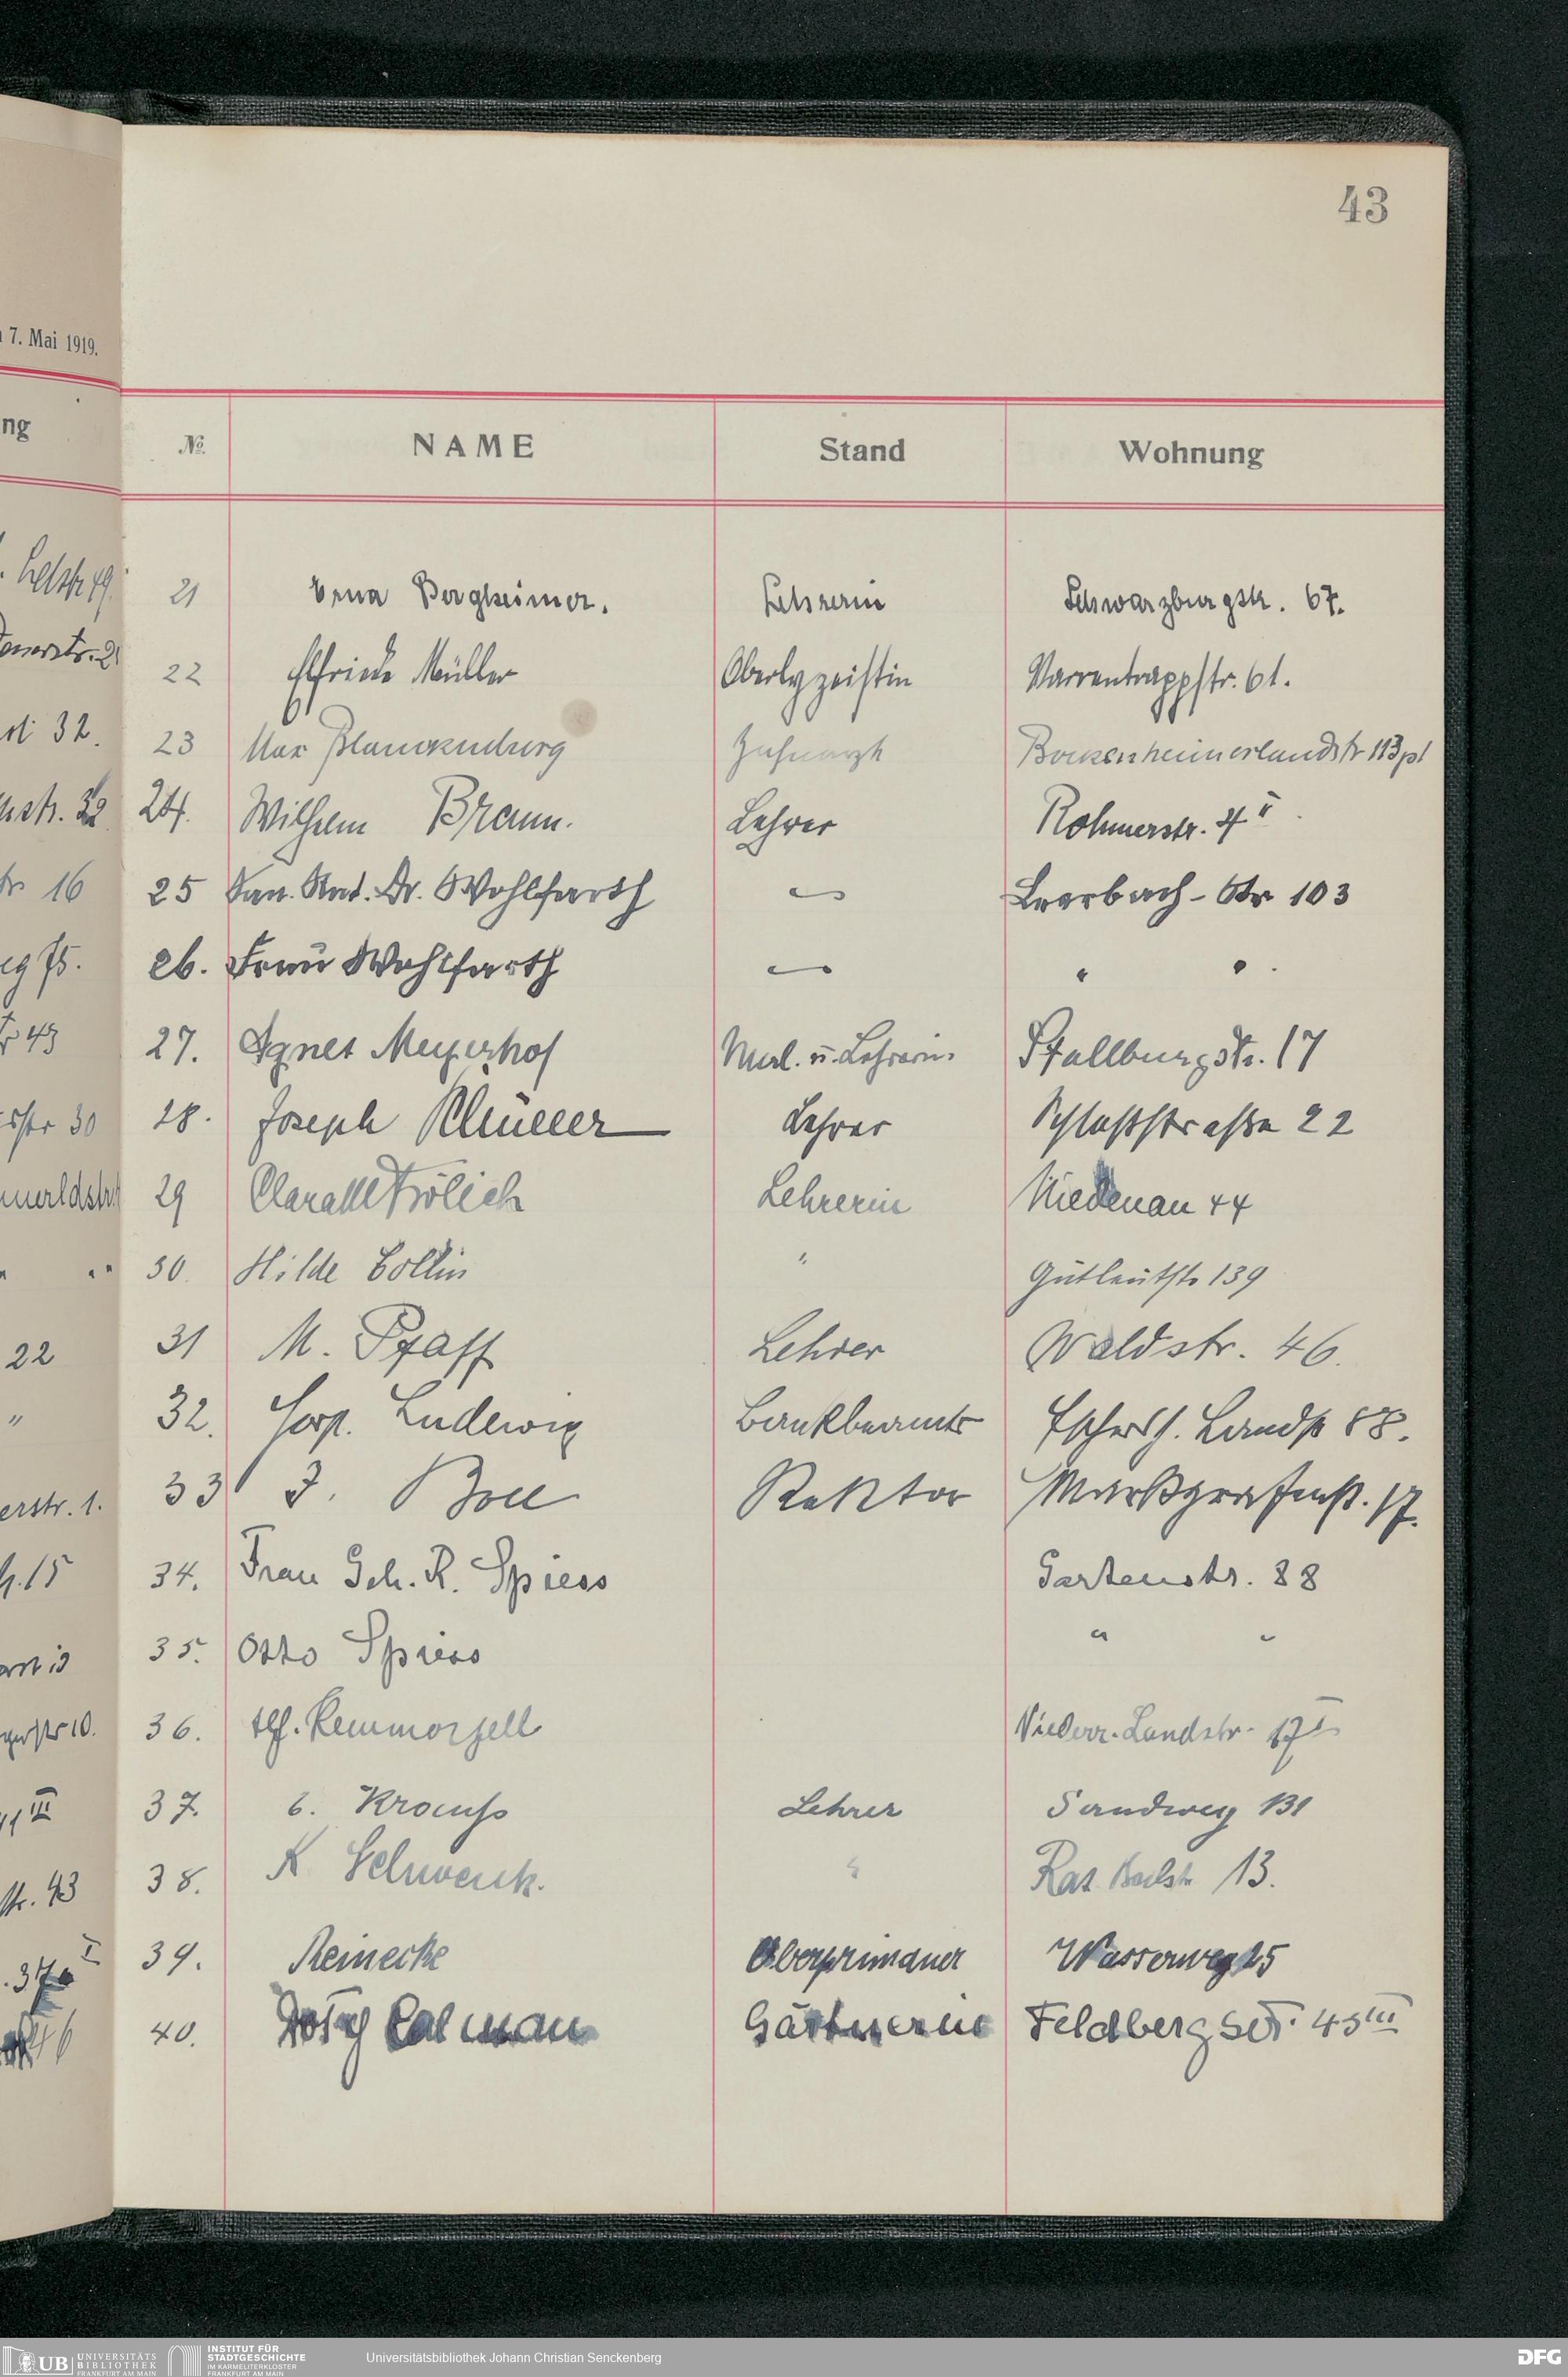 43
7. Mai 1919.
№ NAME Stand Wohnung
21 Erna Bergheimer. Lehrerin Schwarzburgstr. 67.
22 Elfriede Müller Oberlyzeistin Varrentrappstr. 61.
23 Max Blanckenburg Zahnarzt Bockenheimerlandstr 113 pt
24. Wilhelm Braun. Lehrer Rohmerstr. 4 II
25 San. Rat. Dr. Wohlfarth — Leerbach-Str 103
26. Frau Wohlfarth — " "
27. Agnes Meyerhof Mal. u. Lehrerin. Stallburgstr. 17
28. Joseph Lehrer Schloßstraße 22
29 Clara Frölich Lehrerin Niedenau 44
30. Hilde Collin " Gutleutstr 139
31 M. Pfaff Lehrer Waldstr. 46.
32. Ludewig Bankbeamter Eschersh. Landstr 68.
33 J. Boll Rektor Markgrafenstr. 17.
34. Frau Geh. R. Spiess Gartenstr. 88
35. Otto Spiess " "
36. Kemmerzell Niederr. Landstr.
37. Krauss Lehrer Sandweg 131
38. K Schwenck. " 13.
39. Reinecke Oberprimaner Wasserweg 25
40. Calman Gärtnerin Feldbergstr. 45 III
UB UNIVERSITÄTS BIBLIOTHEK FRANKFURT AM MAIN
INSTITUT FÜR STADTGESCHICHTE IM KARMELITERKLOSTER FRANKFURT AM MAIN
Universitätsbibliothek Johann Christian Senckenberg
DFG